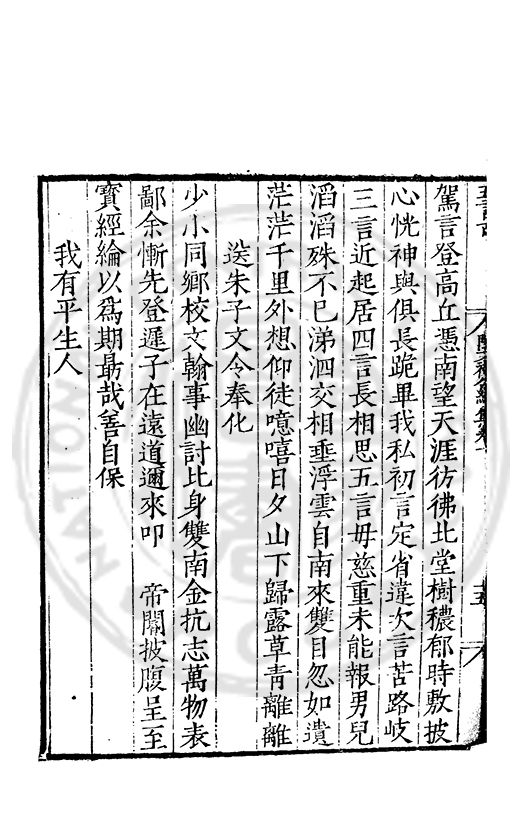 駕言登高丘憑南望天涯彷彿北堂樹穠郁時敷披
心恍神與俱長跪畢我私初言定省違次言苦路岐
三言近起居四言長相思五言毋慈重未能報男兒
滔滔殊不已涕泗交相垂浮雲自南來雙目忽如遺
茫茫千里外想仰徒噫嘻日夕山下歸露草青離離
送朱子文令奉化
少小同鄉校文翰事幽討比身雙南金抗志萬物表
鄙余慚先登遲子在遠道邇來叩　帝閽披腹呈至
寶經綸以爲期勗哉善自保
我有平生人